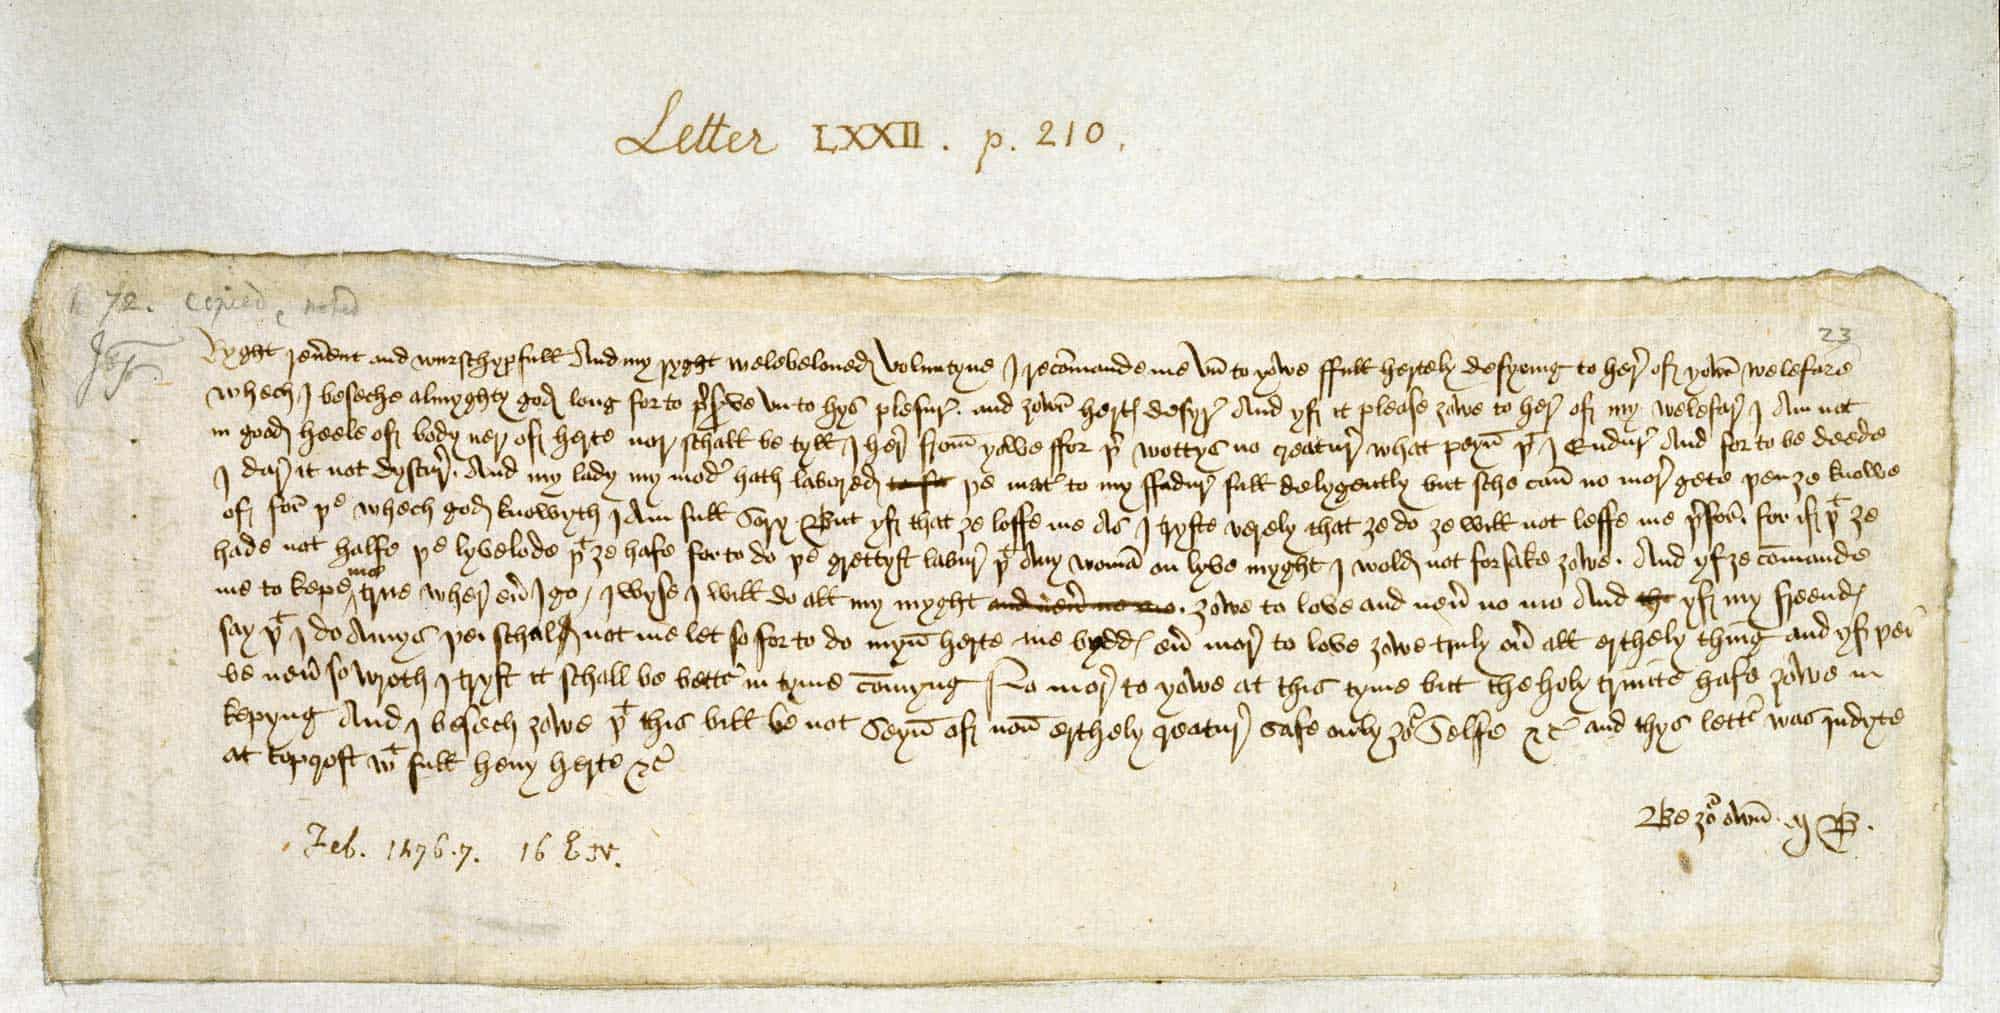 Letter LXXII. p. 210.
72. copied, noted
23
Ryght reũent and wurschypfull And my ryght welebeloued Voluntyne I recõmande me vñ to yowe ffull hertely desyring to her̃ of yowr̃ welefare
whech I beseche almyghty god long for to p̃s̃ve vn to hys plesur̃ . and ȝowr̃ hertẹ desyr̃ And yf it please ȝowe to her̃ of my welefar̃ I Am not
in good heele of body ner of herte nor schall be tyll I her̃ from̃ yowe ffor þr̃ wottys no creatur̃ what peyñ þt I Endur̃ And for to be deede
I dar̃ it not dyscur̃ . And my lady my modr̃ hath labored to ſſ þe mat̃ to my ffadur̃ full delygently but sche cañ no mor̃ gete þen ȝe knowe
of for̃ þe whech god knowyth I Am full Sory But yf that ȝe loffe me As I tryste verely that ȝe do ȝe will not leffe me þr̃for̃ . for if þt ȝe
hade not halfe þe lyvelode þt ȝe hafe for to do þe grettyst labur̃ þt Any womã on lyve myght I wold not forsake ȝowe . And yf ȝe cõmande
me to kepe me true wher̃ eũ I go / I wyse I will do all my myght and neũ no mo . ȝowe to love and neũ no mo And the yf my freendẹ
say þt I do Amys þei schall not me let so for to do myñ herte me byddẹ eũ mor̃ to love ȝowe truly oũ all erthely thing and yf þei
be neũ so wroth I tryst it schall be bettr̃ in tyme cõmyng No mor̃ to yowe at this tyme but the holy trinite hafe ȝowe in
kepyng And I besech ȝowe þt this bill be not Seyñ of noñ erthely creatur̃ safe only ȝor Selfe &c̃ and thys lettr̃ was indyte
at topcroft wt full heuy herte &c̃
Be ȝor owñ . M B .
Feb. 1476.7. 16 E IV.